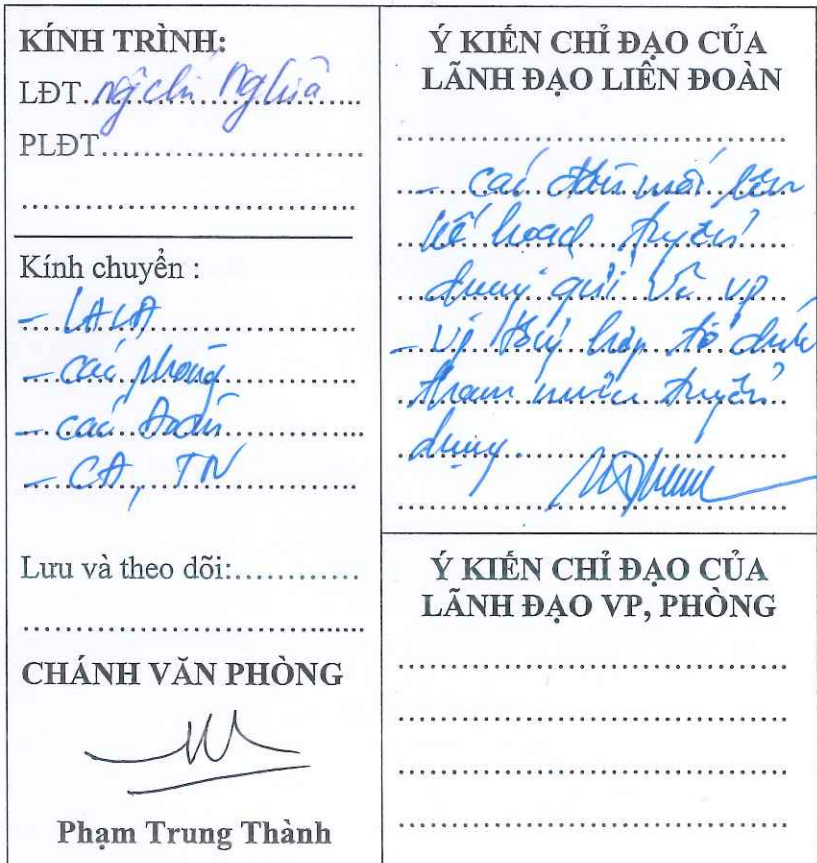 KÍNH TRÌNH:
LĐT. Ng chí Nghĩa
PLĐT
Kính chuyển :
- LĐLĐ
- các phòng
- các Đoàn
- CA, TN
Lưu và theo dõi:
CHÁNH VĂN PHÒNG
Phạm Trung Thành
Ý KIẾN CHỈ ĐẠO CỦA
LÃNH ĐẠO LIÊN ĐOÀN
- các
kế hoạch tuyển
dụng gửi về VP
- VP hợp tổ chức
tham mưu tuyển
dụng.
Ý KIẾN CHỈ ĐẠO CỦA
LÃNH ĐẠO VP, PHÒNG